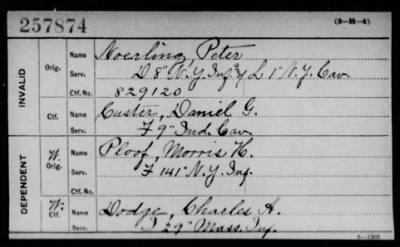 257874
(3-H-4)
INVALID
Orig.
Name Noerling, Peter
Serv. D 8" N.Y. Inf. & L 1" N.Y. Cav.
Ctf. No. 829120
Ctf.
Name Custer, Daniel G.
Serv. F 9" Ind. Cav.
DEPENDENT
W. Orig.
Name Ploof, Morris H.
Serv. F 141" N.Y. Inf.
W. Ctf.
Name Dodge, Charles A.
Serv. I 29" Mass. Inf.